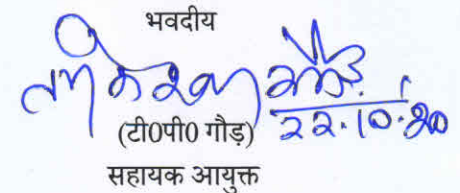 भवदीय
22.10.20
(टी0पी0 गौड़)
सहायक आयुक्त